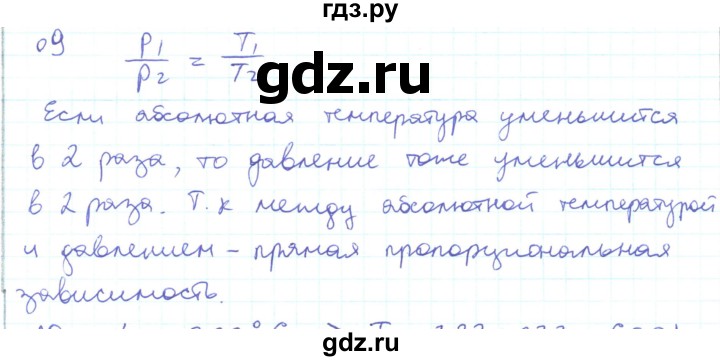 гдз.ру
09 P1/P2 = T1/T2
gdz.ru
Если абсолютная температура уменьшится
в 2 раза, то давление тоже уменьшится
в 2 раза. Т.к между абсолютной температурой
и давлением – прямая пропорциональная
зависимость.